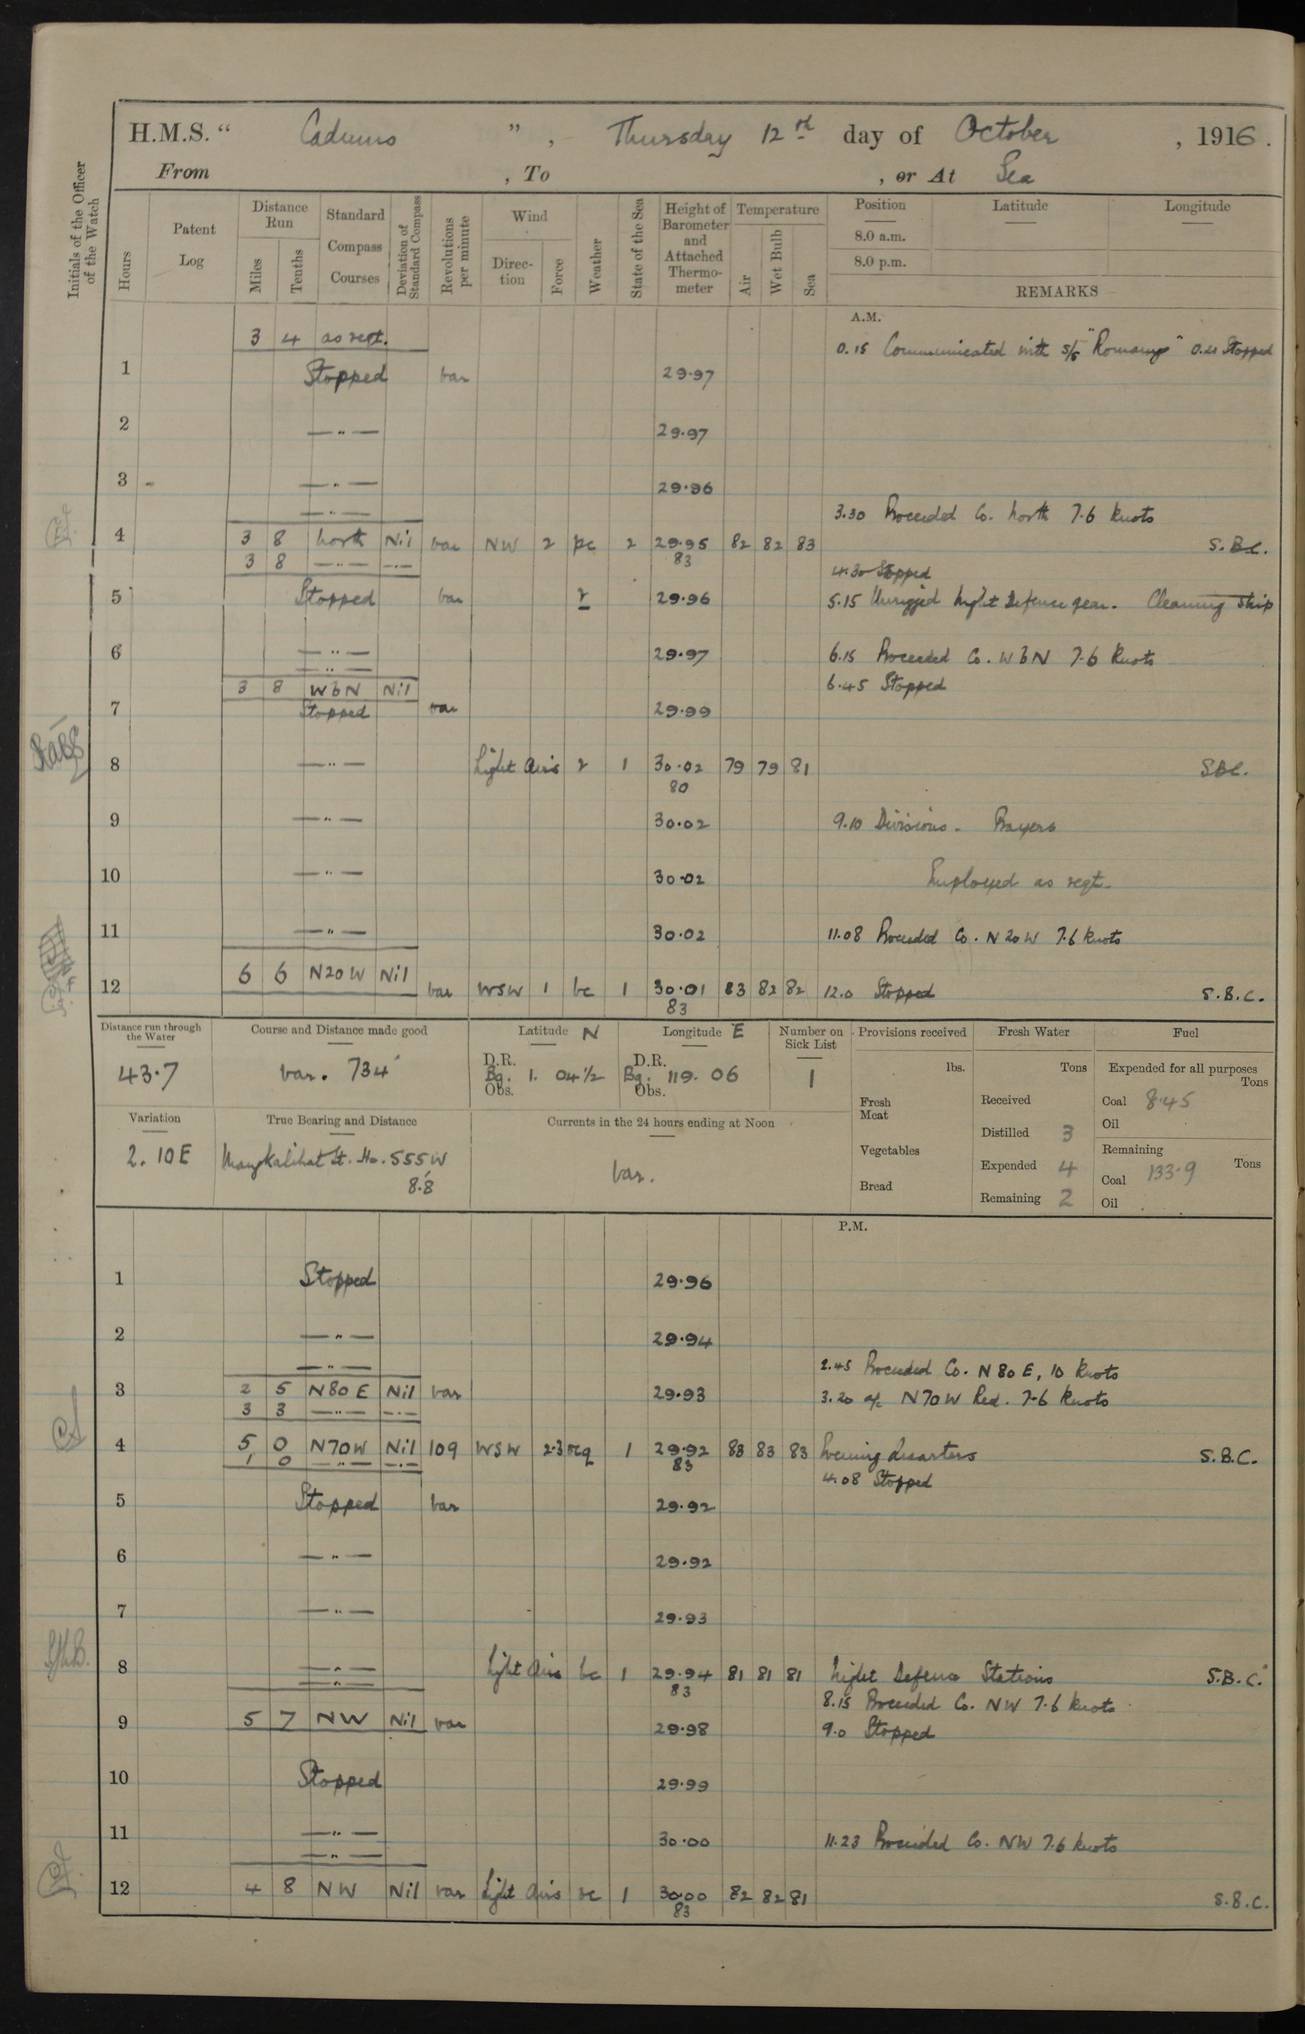 H.M.S. " Cadmus ", Thursday 12th day of October, 1916.
From , To , or At Sea
Initials of the Officer of the Watch
Hours
Patent Log
Distance Run
Miles
Tenths
Standard Compass Courses
Deviation of Standard Compass
Revolutions per minute
Wind
Direction
Force
Weather
State of the Sea
Height of Barometer and Attached Thermometer
Temperature
Air
Wet Bulb
Sea
Position Latitude Longitude
8.0 a.m.
8.0 p.m.
REMARKS
A.M.
3 4 as reqt. 0.15 Communicated with s/s " " 0.21 Stopped
1 Stopped var 29.97
2 — " — 29.97
3 — " — 29.96
— " — 3.30 Proceeded Co. North 7.6 knots
4 3 8 North Nil var NW 2 bc 2 29.95 82 82 83 S.B.C.
3 8 — " — — " — 83 4.30 Stopped
5 Stopped var 2 29.96 5.15 Unrigged Night Defence gear. Cleaning Ship
6 — " — 29.97 6.15 Proceeded Co. W b N 7.6 knots
— " —
3 8 W b N Nil 6.45 Stopped
7 Stopped var 29.99
8 — " — Light Airs 2 1 30.02 79 79 81 SBC.
80
9 — " — 30.02 9.10 Divisions. Prayers
10 — " — 30.02 Employed as reqt.
11 — " — 30.02 11.08 Proceeded Co. N 20 W 7.6 knots
12 6 6 N20W Nil var WSW 1 bc 1 30.01 83 82 82 12.0 Stopped S.B.C.
83
Distance run through the Water Course and Distance made good Latitude N Longitude E Number on Sick List Provisions received Fresh Water Fuel
43.7 var. 73 4' D.R. Bg. Obs. 1. 04½ D.R. Bg. Obs. 119. 06 1
lbs. Tons Expended for all purposes Tons
Fresh Meat Received Coal 8.45
Distilled 3 Oil
Variation True Bearing and Distance Currents in the 24 hours ending at Noon
2.10E Mangkalihat Lt. Ho. S55W 8.8' var.
Vegetables Expended 4 Remaining Tons
Coal 133.9
Bread Remaining 2 Oil
P.M.
1 Stopped 29.96
2 — " — 29.94
— " — 2.45 Proceeded Co. N 80 E, 10 knots
3 2 5 N80E Nil var 29.93 3.20 a/c N70W Red. 7.6 knots
3 3 — " — — " —
4 5 0 N70W Nil 109 WSW 2.3 ocq 1 29.92 83 83 83 Evening Quarters S.B.C.
1 0 — " — — " — 83 4.08 Stopped
5 Stopped var 29.92
6 — " — 29.92
7 — " — 29.93
8 — " — Light Airs bc 1 29.94 81 81 81 Night Defence Stations S.B.C.
— " — 83 8.15 Proceeded Co. NW 7.6 knots
9 5 7 NW Nil var 29.98 9.0 Stopped
10 Stopped 29.99
11 — " — 30.00 11.23 Proceeded Co. NW 7.6 knots
— " —
12 4 8 NW Nil var Light Airs bc 1 30.00 82 82 81 S.B.C.
83